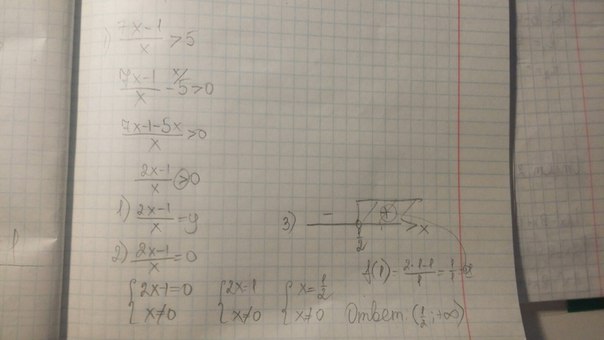 ) (7x-1)/x > 5
(7x-1)/x - 5 > 0
(7x-1-5x)/x > 0
(2x-1)/x > 0
1) (2x-1)/x = y
2) (2x-1)/x = 0
{ 2x-1=0 { 2x=1 { x=1/2
{ x≠0 { x≠0 { x≠0
3) - + 1/2 x
f(1) = (2·1-1)/1 = 1/1
Ответ: (1/2; +∞)